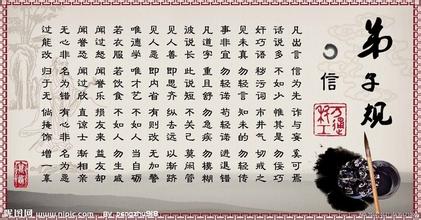 弟子规
信
凡出言 信为先 诈与妄 奚可焉
话说多 不如少 惟其是 勿佞巧
奸巧语 秽污词 市井气 切戒之
见未真 勿轻言 知未的 勿轻传
事非宜 勿轻诺 苟轻诺 进退错
凡道字 重且舒 勿急疾 勿模糊
彼说长 此说短 不关己 莫闲管
见人善 即思齐 纵去远 以渐跻
见人恶 即内省 有则改 无加警
唯德学 唯才艺 不如人 当自砺
若衣服 若饮食 不如人 勿生戚
闻过怒 闻誉乐 损友来 益友却
闻誉恐 闻过欣 直谅士 渐相亲
无心非 名为错 有心非 名为恶
过能改 归于无 倘掩饰 增一辜
昵图网
www.nipic.com